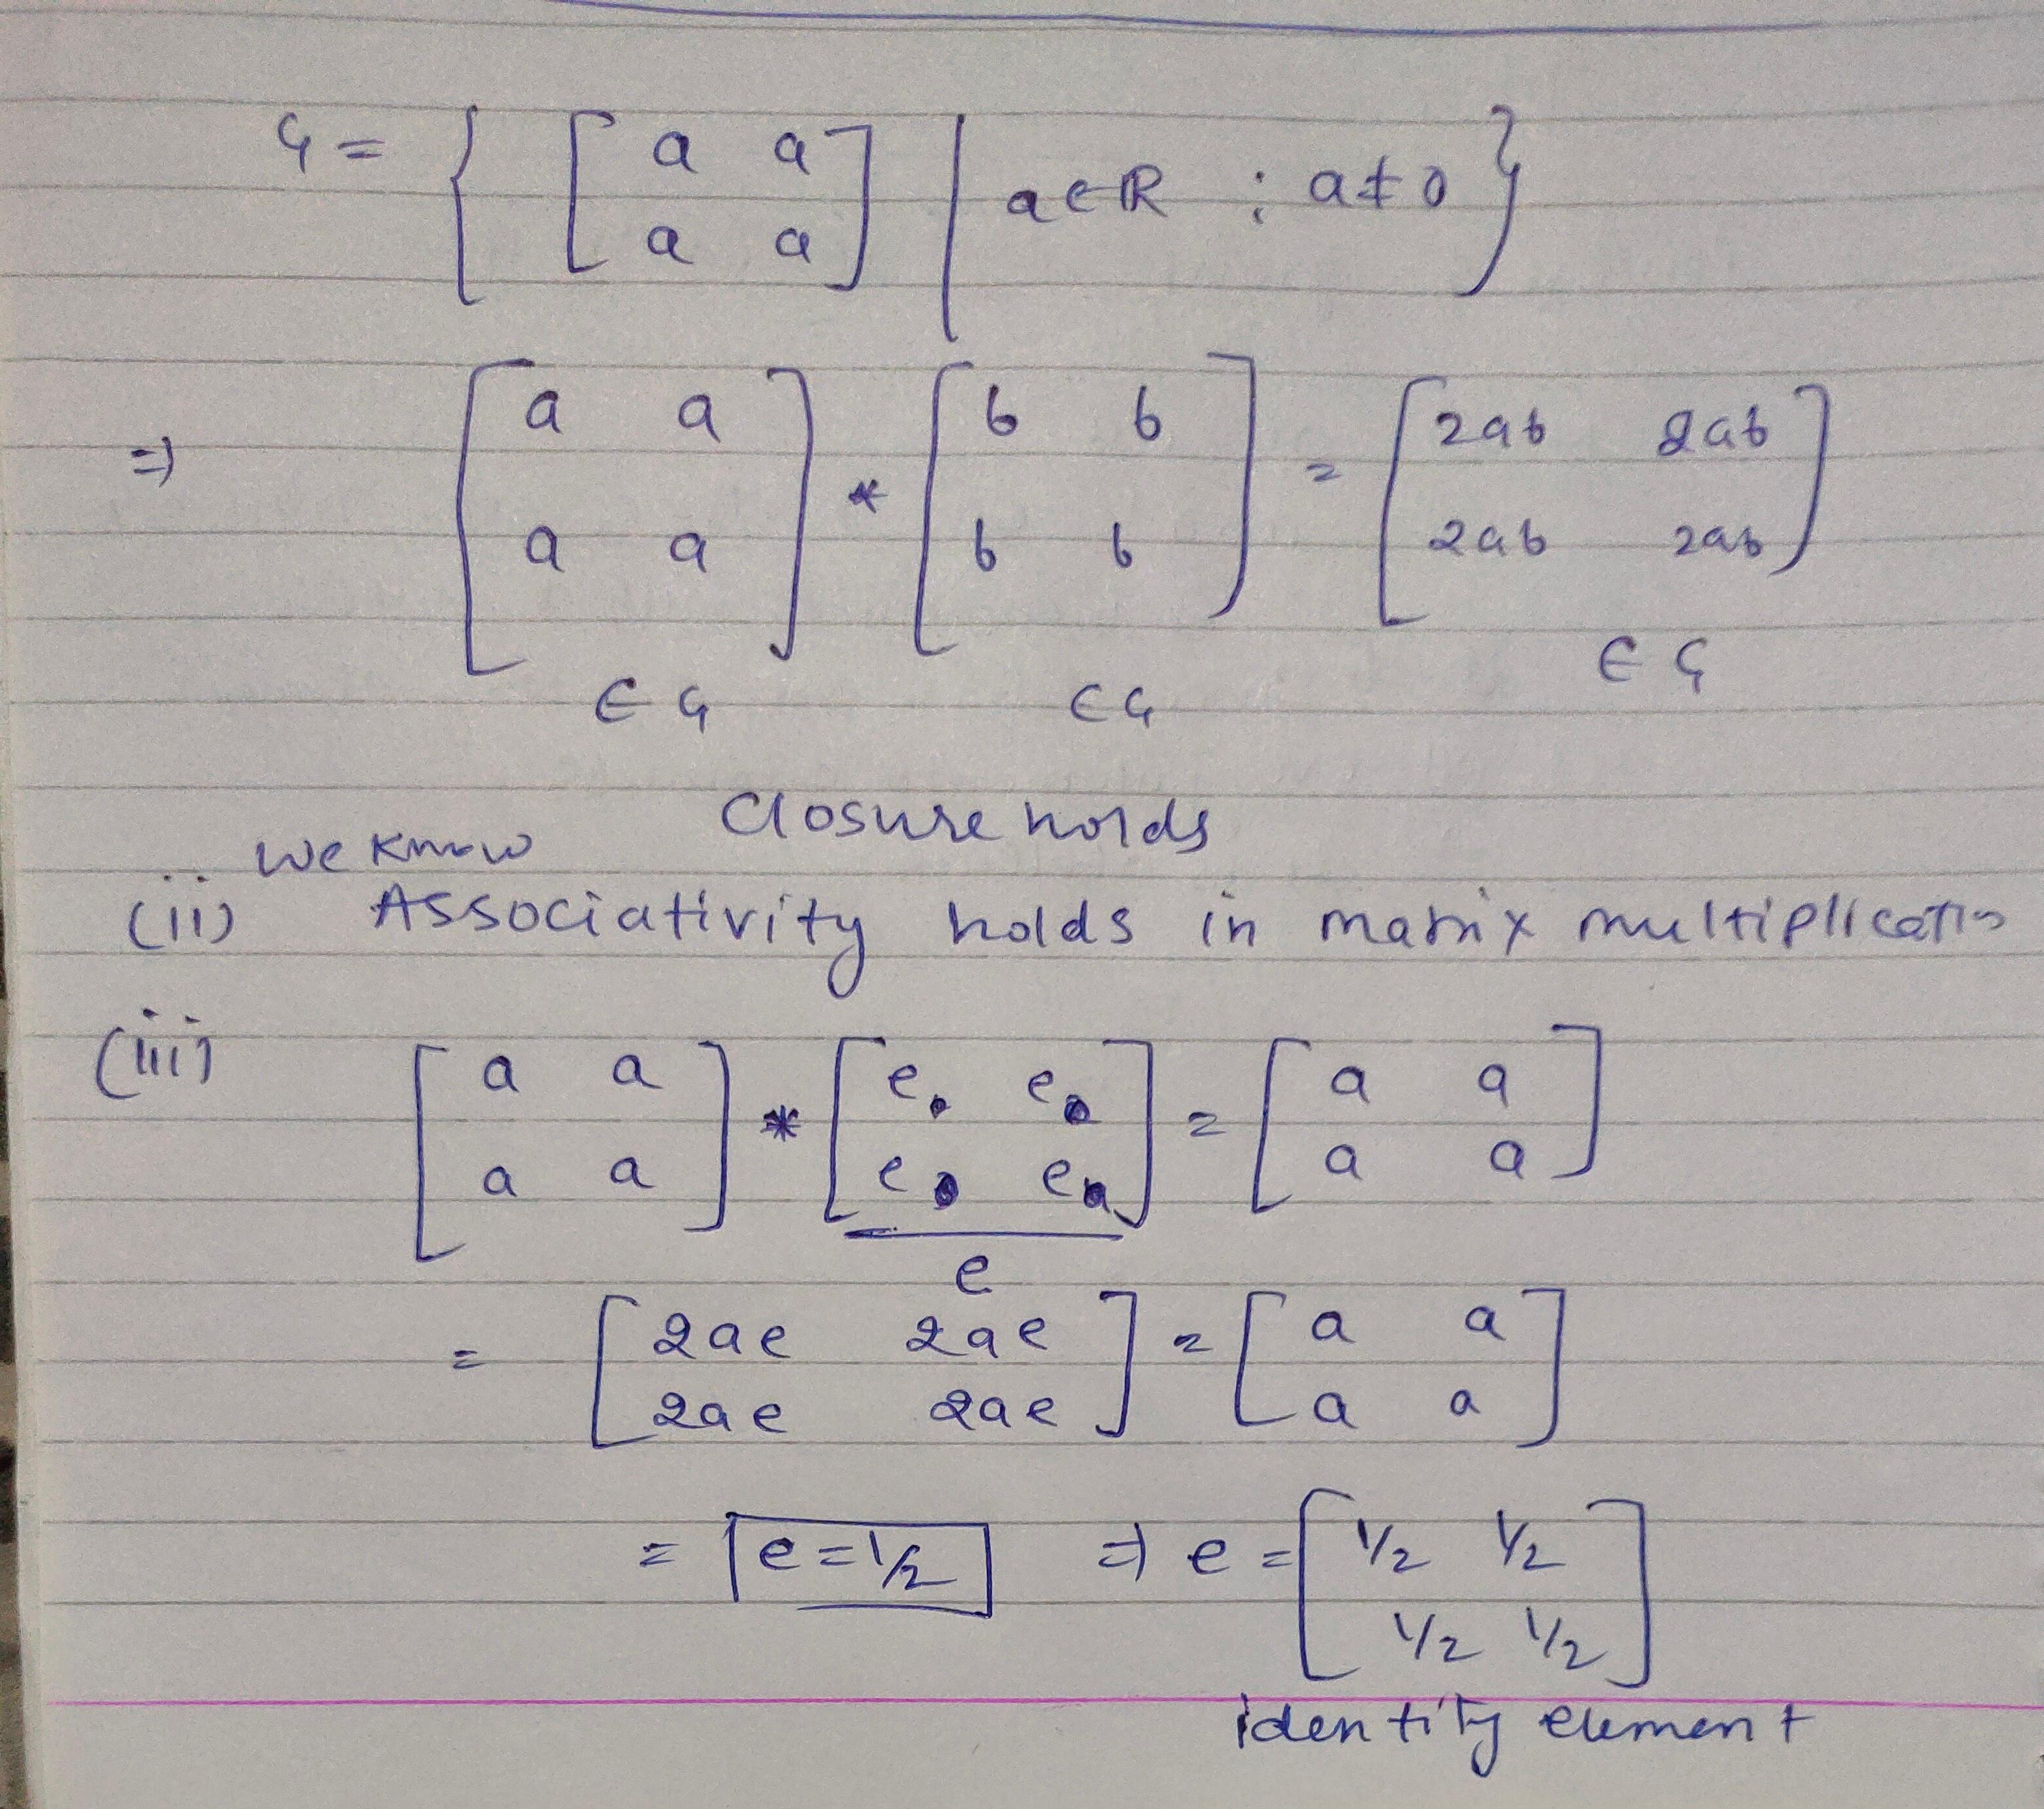 G = { [ a a ] | a ∈ ℝ ; a ≠ 0 }
[ a a ]
⇒ [ a a ] * [ b b ] = [ 2ab 2ab ]
[ a a ] [ b b ] [ 2ab 2ab ]
∈ G ∈ G ∈ G
Closure holds
we know
(ii) Associativity holds in matrix multiplication
(iii) [ a a ] * [ e e ] = [ a a ]
[ a a ] [ e e ] [ a a ]
e
= [ 2ae 2ae ] = [ a a ]
[ 2ae 2ae ] [ a a ]
= e = 1/2 ⇒ e = [ 1/2 1/2 ]
[ 1/2 1/2 ]
identity element